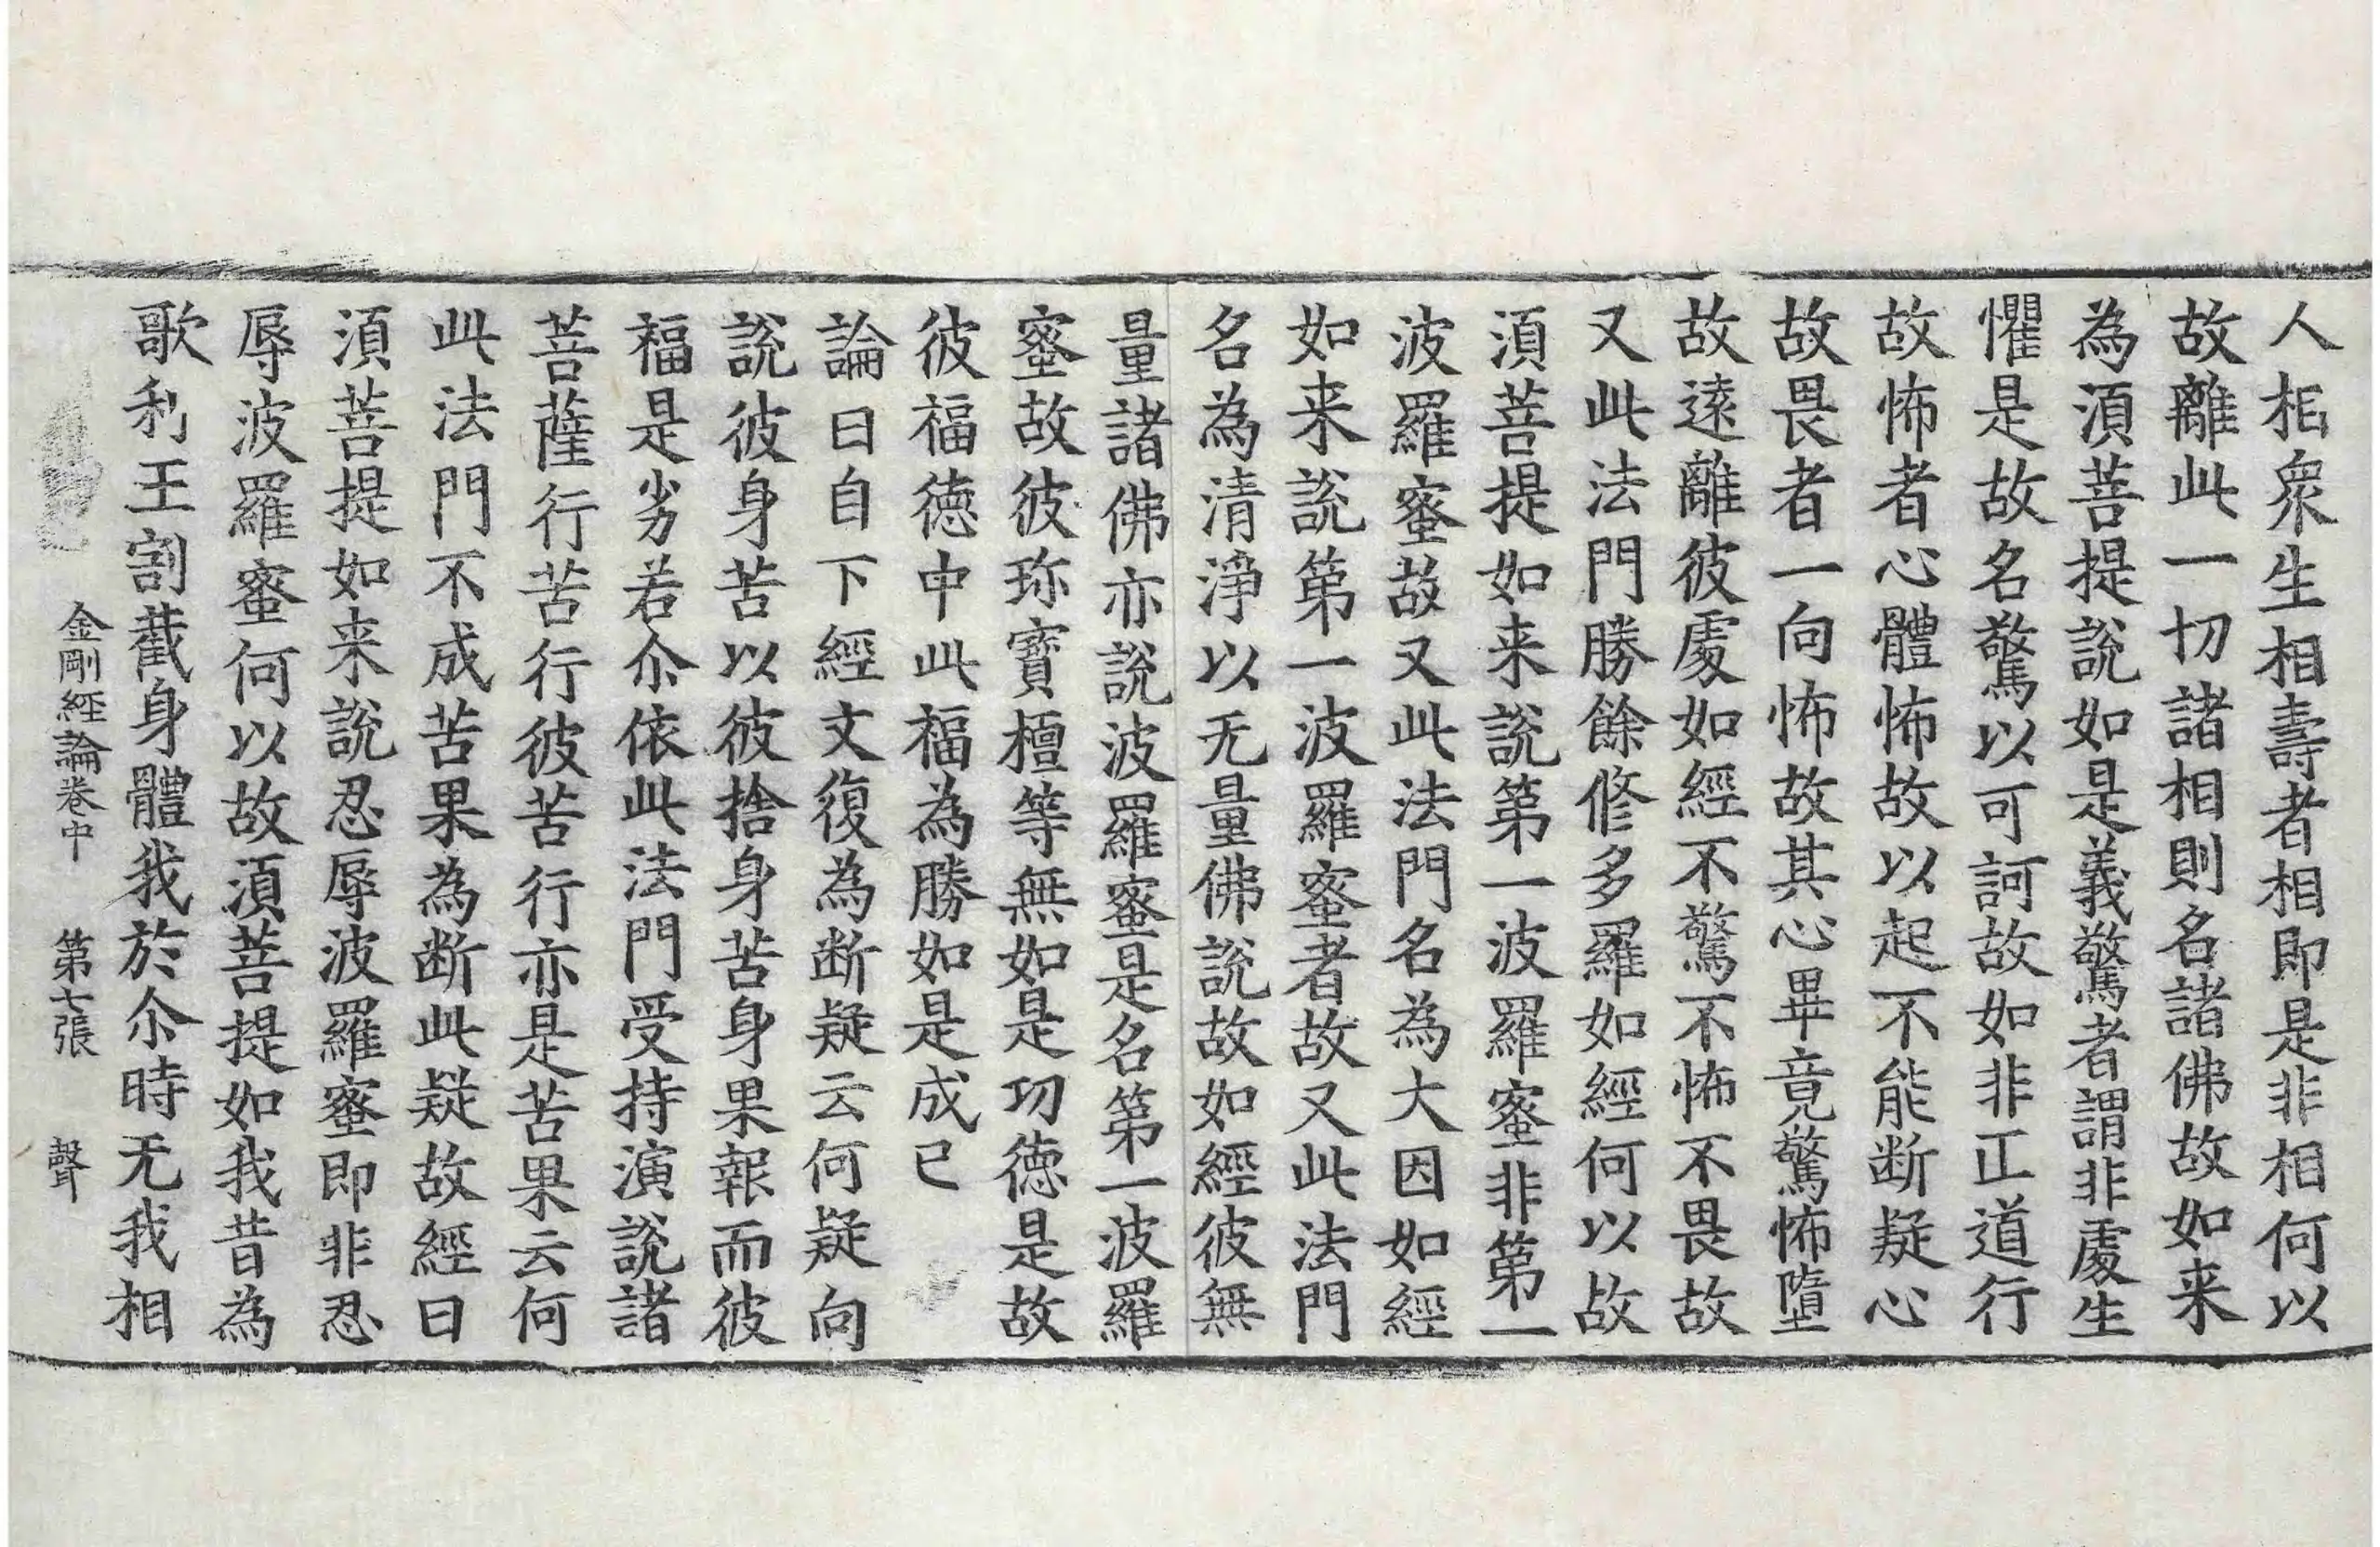 人相衆生相壽者相即是非相何以
故離此一切諸相則名諸佛故如来
為湏菩提說如是義驚者謂非處生
懼是故名驚以可訶故如非正道行
故怖者心體怖故以起不能断疑心
故畏者一向怖故其心畢竟驚怖墮
故遠離彼處如經不驚不怖不畏故
又此法門勝餘修多羅如經何以故
湏菩提如来說第一波羅蜜非第一
波羅蜜故又此法門名為大因如經
如来說第一波羅蜜者故又此法門
名為清淨以无量佛說故如經彼無
量諸佛亦說波羅蜜是名第一波羅
蜜故彼珎寳檀等無如是功徳是故
彼福徳中此福為勝如是成已
論曰自下經文復為断疑云何疑向
說彼身苦以彼捨身苦身果報而彼
福是劣若尒依此法門受持演說諸
菩薩行苦行彼苦行亦是苦果云何
此法門不成苦果為断此疑故經曰
湏菩提如来說忍辱波羅蜜即非忍
辱波羅蜜何以故湏菩提如我昔為
歌利王割截身體我於尒時无我相
金剛經論卷中 第七張 聲